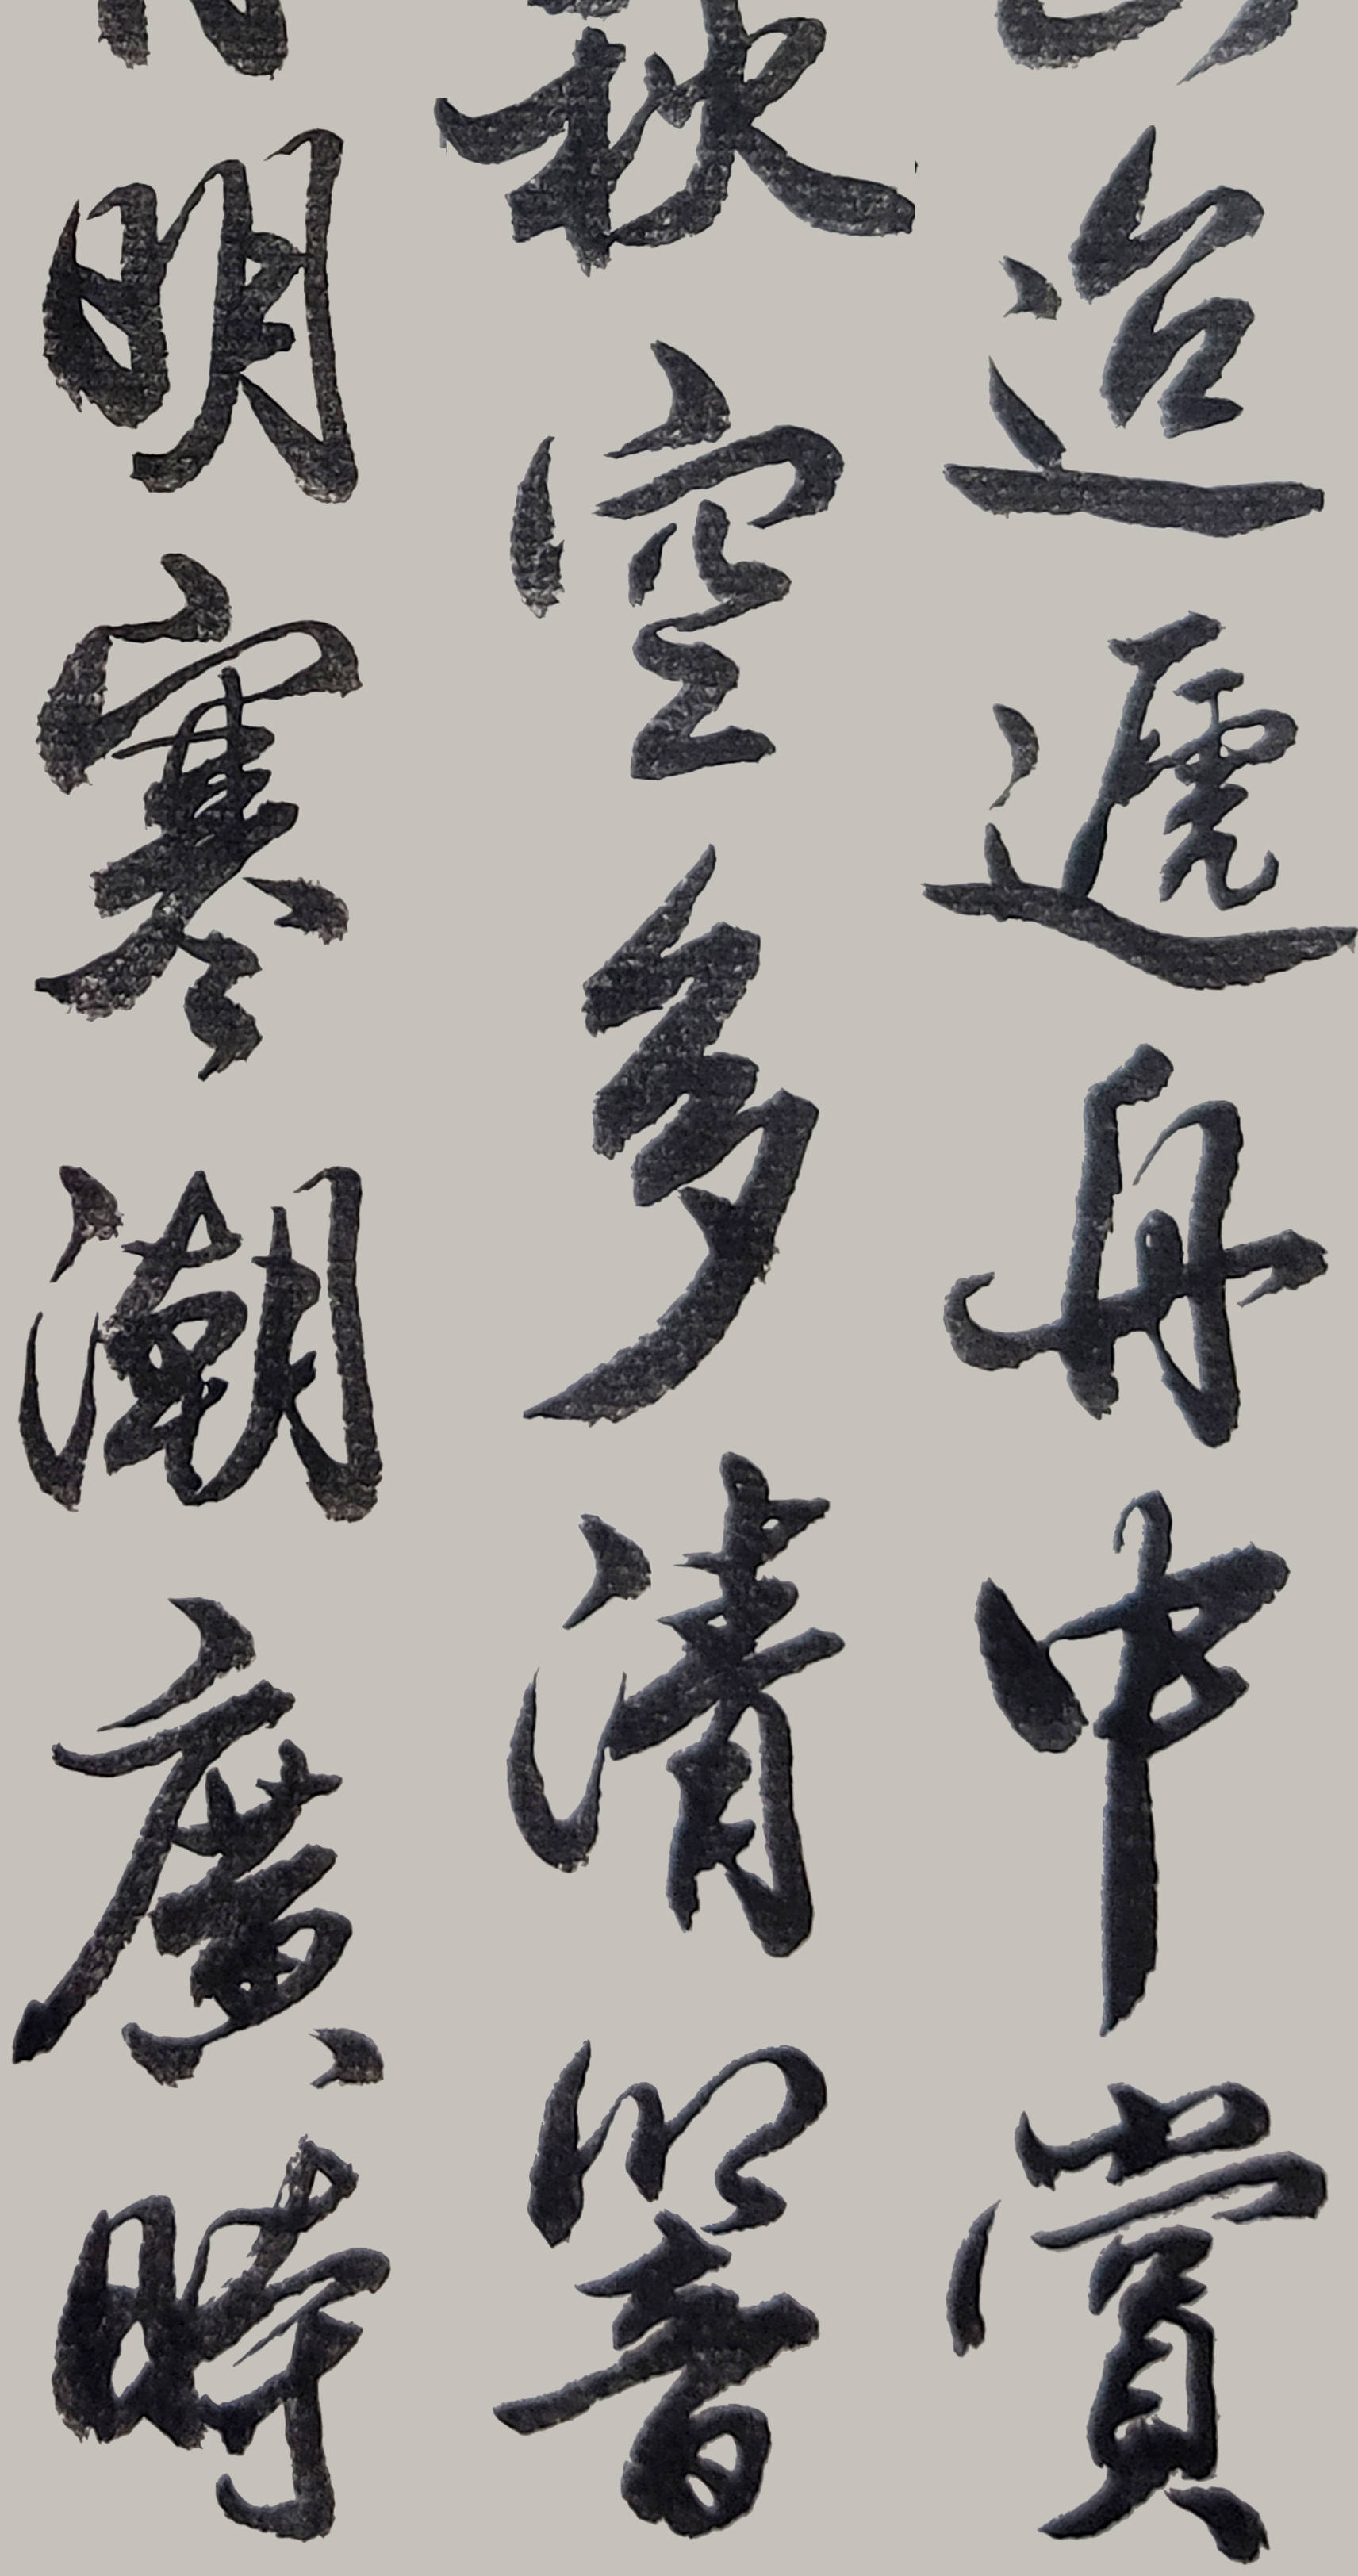 迢遞舟中賞
秋空多清響
明寒潮廣時